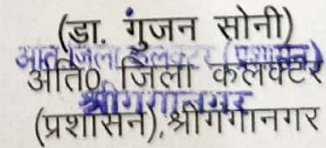 (डा. गुंजन सोनी)
अति0 जिला कलेक्टर (प्रशासन)
अति0 जिला कलक्टर
श्रीगंगानगर
(प्रशासन),श्रीगंगानगर